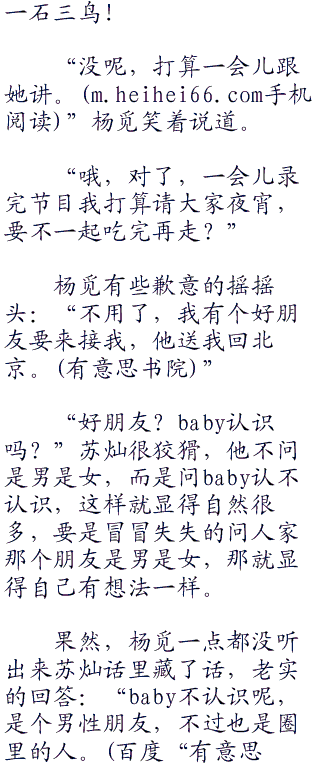 一石三鸟！
“没呢，打算一会儿跟
她讲。(m.heihei66.com手机
阅读)”杨觅笑着说道。
“哦，对了，一会儿录
完节目我打算请大家夜宵，
要不一起吃完再走？”
杨觅有些歉意的摇摇
头：“不用了，我有个好朋
友要来接我，他送我回北
京。(有意思书院)”
“好朋友？baby认识
吗？”苏灿很狡猾，他不问
是男是女，而是问baby认不
认识，这样就显得自然很
多，要是冒冒失失的问人家
那个朋友是男是女，那就显
得自己有想法一样。
果然，杨觅一点都没听
出来苏灿话里藏了话，老实
的回答：“baby不认识呢，
是个男性朋友，不过也是圈
里的人。(百度“有意思